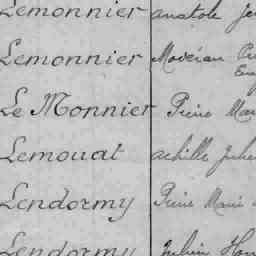 Lemonnier Anatole
Lemonnier
Le Monnier Pierre Marie
Lemouat Achille Julien
Lendormy Pierre Marie
Lendormy Julien